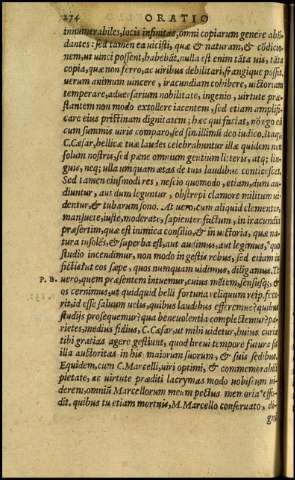 274 ORATIO
innumerabiles, locis infinitas, omni copiarum genere abũ
dantes: sed tamen ea uicisti, quæ & naturam, & cõdicio
nem, ut uinci possent, habebãt. nulla est enim tãta uis, tãta
copia, quæ non ferro, ac uiribus debilitari, frangiq́ue possit.
uerum animum uincere, iracundiam cohibere, uictoriam
temperare, aduersarium nobilitate, ingenio, uirtute præ
stantem non modo extollere iacentem, sed etiam amplifi-
care eius pristinam dignitatem: hæc qui faciat, nõ ego eũ
cum summis uiris comparo, sed simillimũ deo iudico. Itaq;
C. Cæsar, bellicæ tuæ laudes celebrabuntur illæ quidem non
solum nostris, sed pæne omnium gentium literis, atq; lin-
guis, neq; ulla umquam ætas de tuis laudibus conticescet.
Sed tamen eiusmodi res, nescio quomodo, etiam, dum au-
diuntur, aut dum leguntur, obstrepi clamore militum ui-
dentur, & tubarum sono. At uero, cum aliquid clementer,
mansuete, iuste, moderate, sapienter factum, in iracundia
præsertim, quæ est inimica consilio, & in uictoria, quæ na-
tura insolẽs, & superba est, aut audimus, aut legimus, quo
studio incendimur, non modo in gestis rebus, sed etiam in
fictis, ut eos sæpe, quos numquam uidimus, diligamus. Te
P. B. uero, quem præsentem intuemur, cuius mẽtem, sensusq́;, &
os cernimus, ut quidquid belli fortuna reliquum reip. fece-
rit, id esse saluum uelis, quibus laudibus efferemus? quibus
studijs prosequemur? qua beneuolentia complectemur? pa-
rietes, medius fidius, C. Cæsar, ut mihi uidetur, huius curiæ
tibi gratias agere gestiunt, quod breui tempore futura sit
illa auctoritas in his maiorum suorum, & suis sedibus.
Equidem, cum C. Marcelli, uiri optimi, & commemorabili
pietate, ac uirtute præditi lacrymas modo uobiscum ui-
derem, omniũ Marcellorum meum pectus memoria effo-
dit. quibus tu etiam mortuis, M. Marcello conseruato, di-
gni